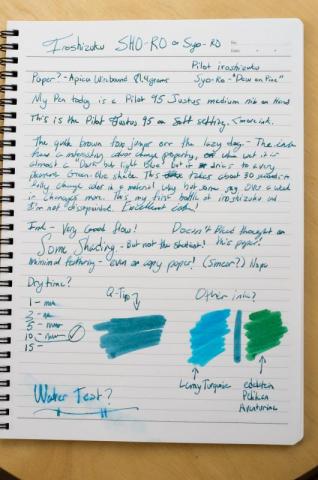 Iroshizuku SHO-RO or Syo-RO
Pilot iroshizuku
Paper? - Apica Wirebound 81.4 grams Syo-Ro - "Dew on Pine"
My Pen today is a Pilot 95 Justus medium nib on Hard
This is the Pilot Justus 95 on Soft setting. Smore ink.
The quick brown fox jumps over the lazy dog - The
there is interesting colour change property, when wet it is
almost a Dark but light Blue! but it dries to a very
Green-Blue shade. This takes about 30 seconds
fully change color is a
it changes more. This my first bottle of iroshizuku and
I'm not disappointed. Excellent color!
Ink - Very Good flow! Doesn't Bleed through on
Some Shading - But not the this paper!
Minimal feathering - even on copy paper! (Smear?) Nope
Dry time? Q-Tip Other inks?
1 -
3 -
5 -
10 -
15 -
Lamy Turquoise edelstein
Pelikan
Aventurine
Water Test?